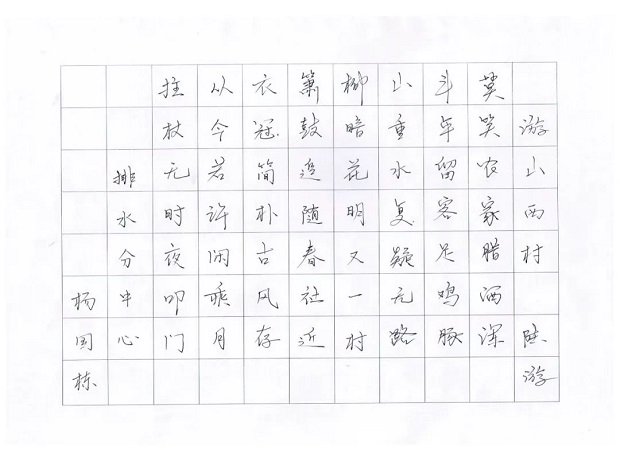 游山西村 陆游
莫笑农家腊酒浑
丰年留客足鸡豚
山重水复疑无路
柳暗花明又一村
箫鼓追随春社近
衣冠简朴古风存
从今若许闲乘月
拄杖无时夜叩门
排水分中心
杨国栋